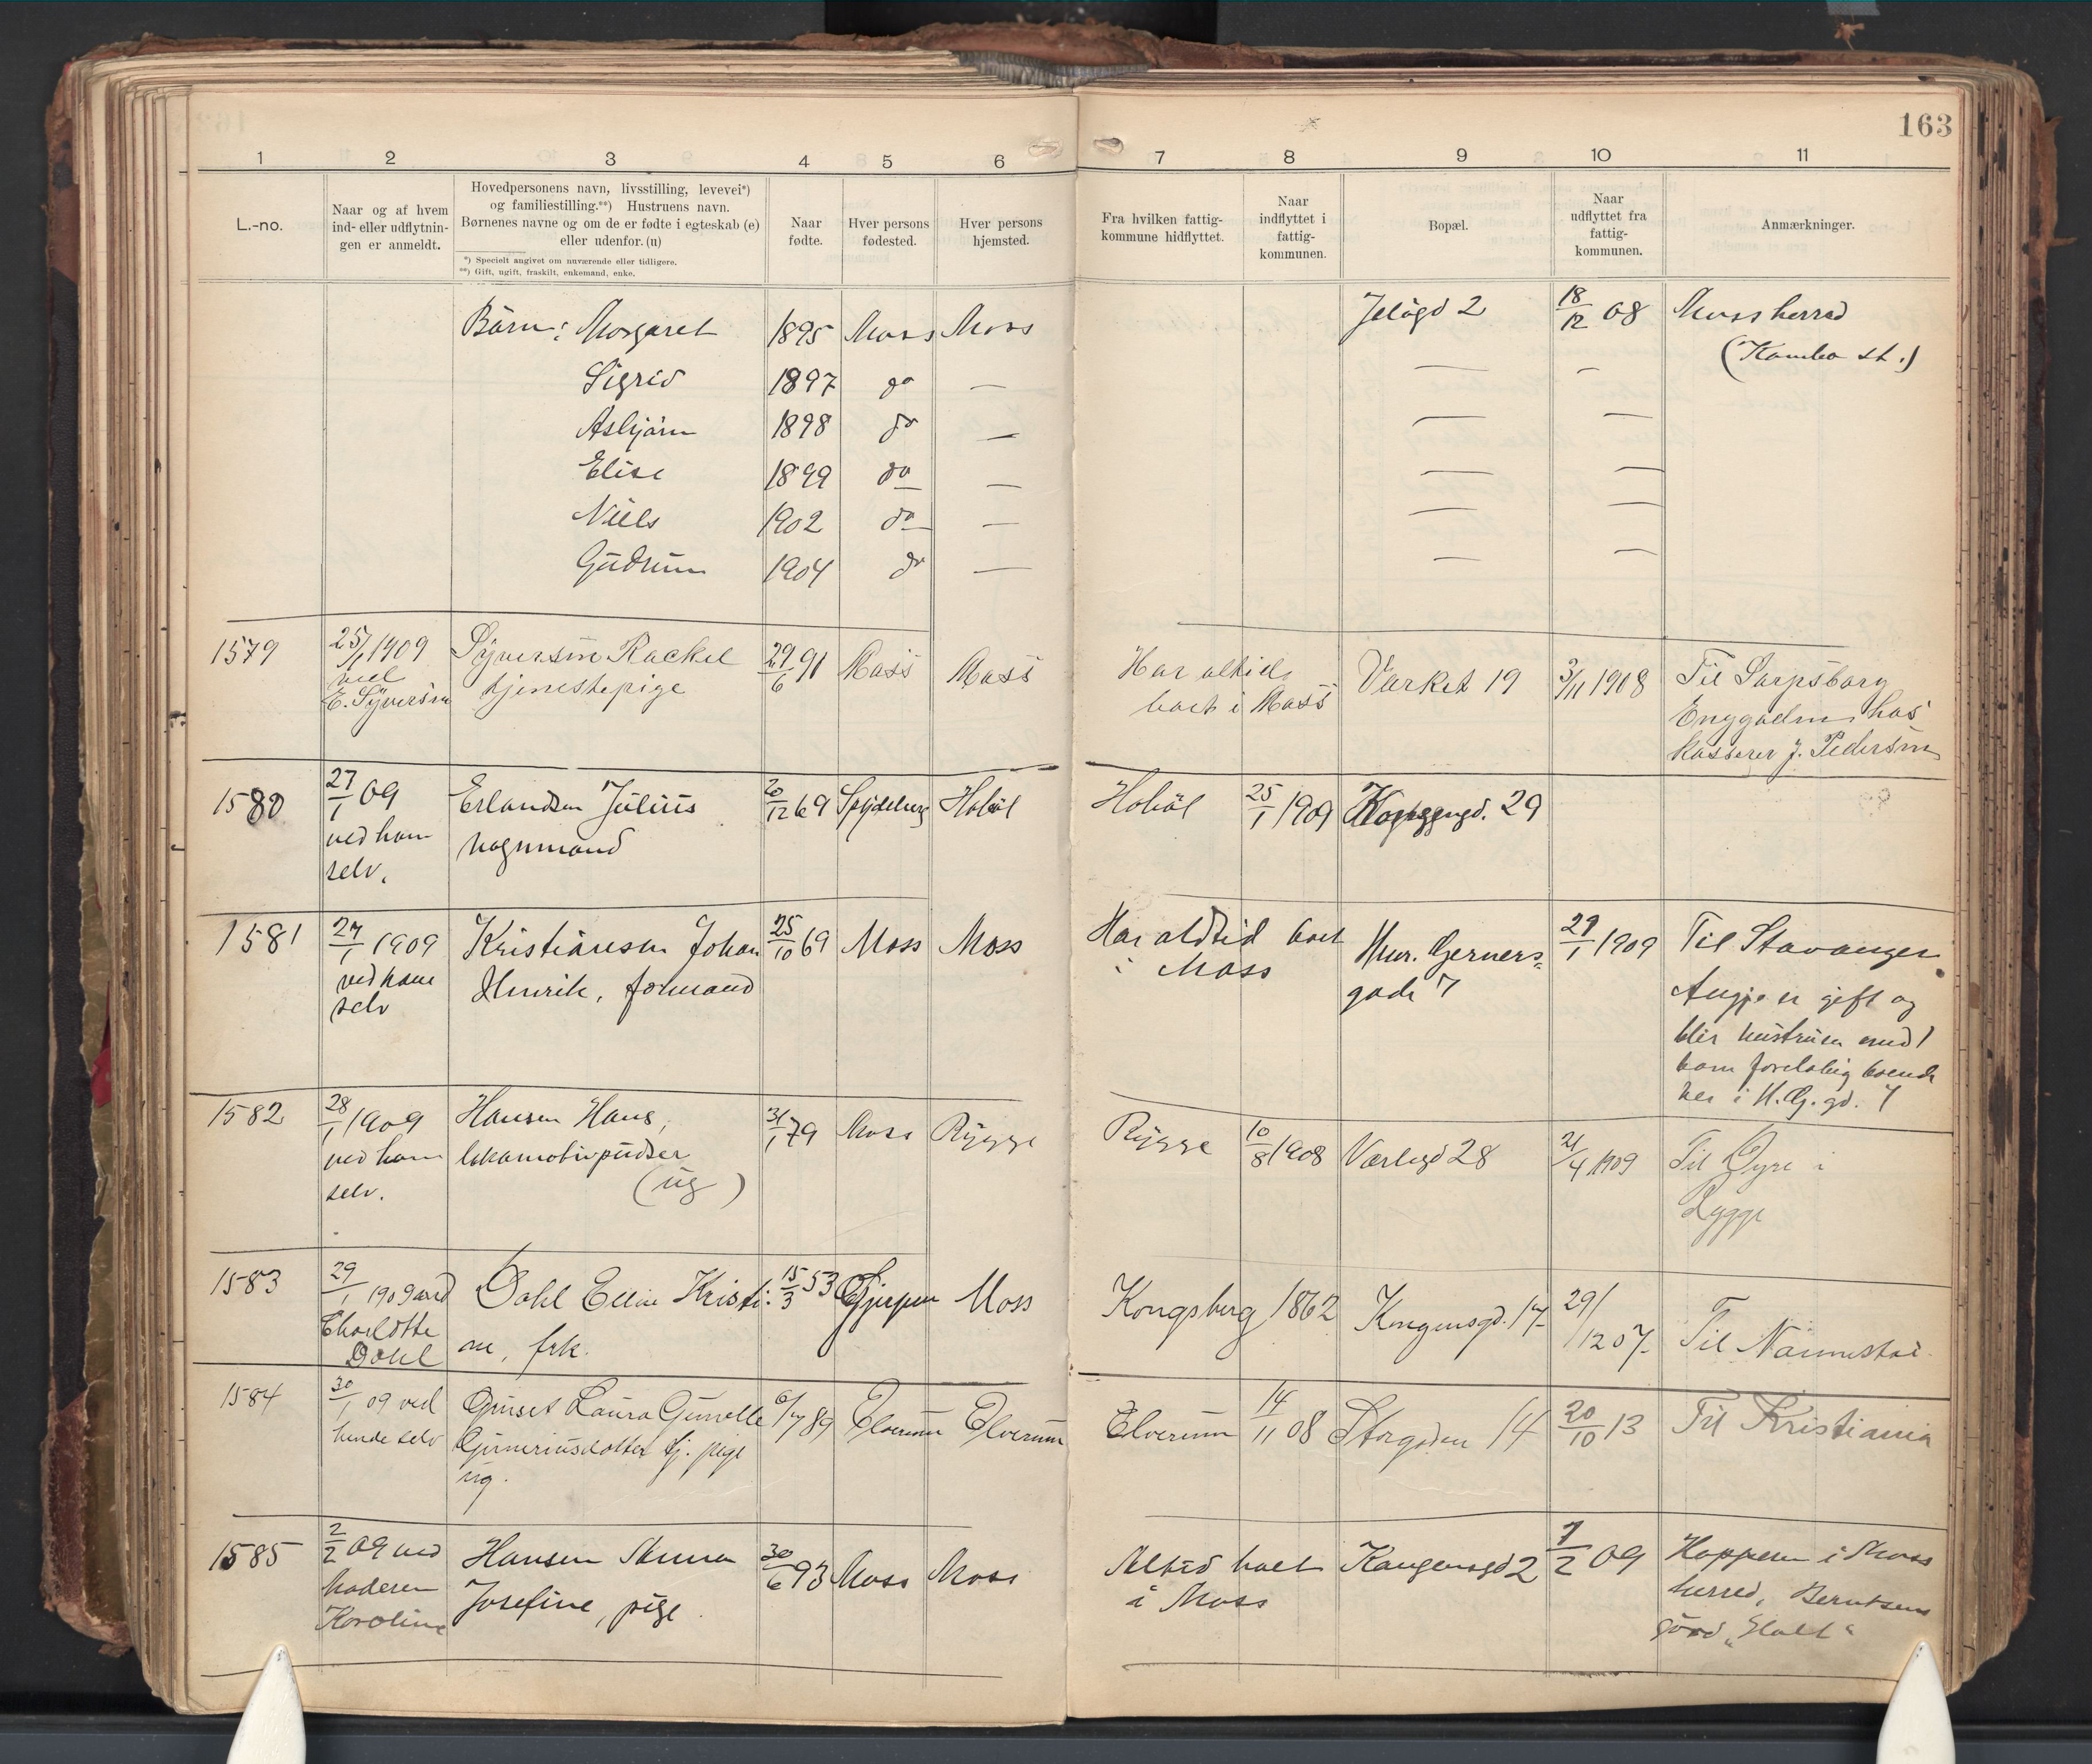 163
1 2 3 4 5 6 7 8 9 10 11
L.-no.
Naar og af hvem
ind- eller udflytnin-
gen er anmeldt.
Hovedpersonens navn, livsstilling, levevei*)
og familiestilling.**) Hustruens navn.
Børnenes navne og om de er fødte i egteskab (e)
eller udenfor. (u)
*) Specielt angivet om nuværende eller tidligere.
**) Gift, ugift, fraskilt, enkemand, enke.
Naar
fødte.
Hver persons
fødested.
Hver persons
hjemsted.
Fra hvilken fattig-
kommune hidflyttet.
Naar
indflyttet i
fattig-
kommunen.
Bopæl.
Naar
udflyttet fra
fattig-
kommunen.
Anmærkninger.
Börn: Margaret 1895 Moss Moss Jeløgd 2 18/12 08 Moss herred
(Kambo st.)
Sigrid 1897 do — — —
Asbjörn 1898 do — — —
Elise 1899 do — — —
Niels 1902 do — — —
Gudrun 1904 do — — —
1579 25/1 1909 Syversen Rackel 29/6 91 Moss Moss Har altid Værket 19 3/11 1908 Til Sarpsborg
ved tjenestepige boet i Moss Enggaden hos
E. Syversen kasserer J. Pedersen
1580 27/1 09 Erlandsen Julius 20/12 69 Spydeberg Hobøl Hobøl 25/1 1909 29
ved ham vognmand
selv.
1581 27/1 1909 Kristiansen Johan 25/10 69 Moss Moss Har altid boet Henr. Gerners- 29/1 1909 Til Stavanger
ved ham Henrik, formand i Moss gade 7 er gift og
selv blir hustruen med 1
barn foreløbig boende
her i H. G. gd. 7
1582 28/1 1909 Hansen Hans, 31/1 79 Moss Rygge Rygge 10/8 1908 Varlegd 28 21/4 1909 Til Øyre i
ved ham lokomotivpudser Rygge
selv. (ug)
1583 29/1 1909 ved Dahl Elline Kristi- 15/3 53 Gjerpen Moss Kongsberg 1862 Kongensgd. 17 29/12 07 Til
Charlotte ne, frk.
Dahl
1584 30/1 09 ved Laura Gunelle 6/7 89 Elverum Elverum Elverum 14/11 08 Storgaden 14 20/10 13 Til Kristiania
hende selv Guneriusdatter tj. pige
ug.
1585 2/2 09 ved Hansen Anna 30/6 93 Moss Moss Altid boet Kongensgd 2 7/2 09 Hoppern i Moss
moderen Josefine, pige. i Moss herred, Berntsens
Karoline gård „Holt"